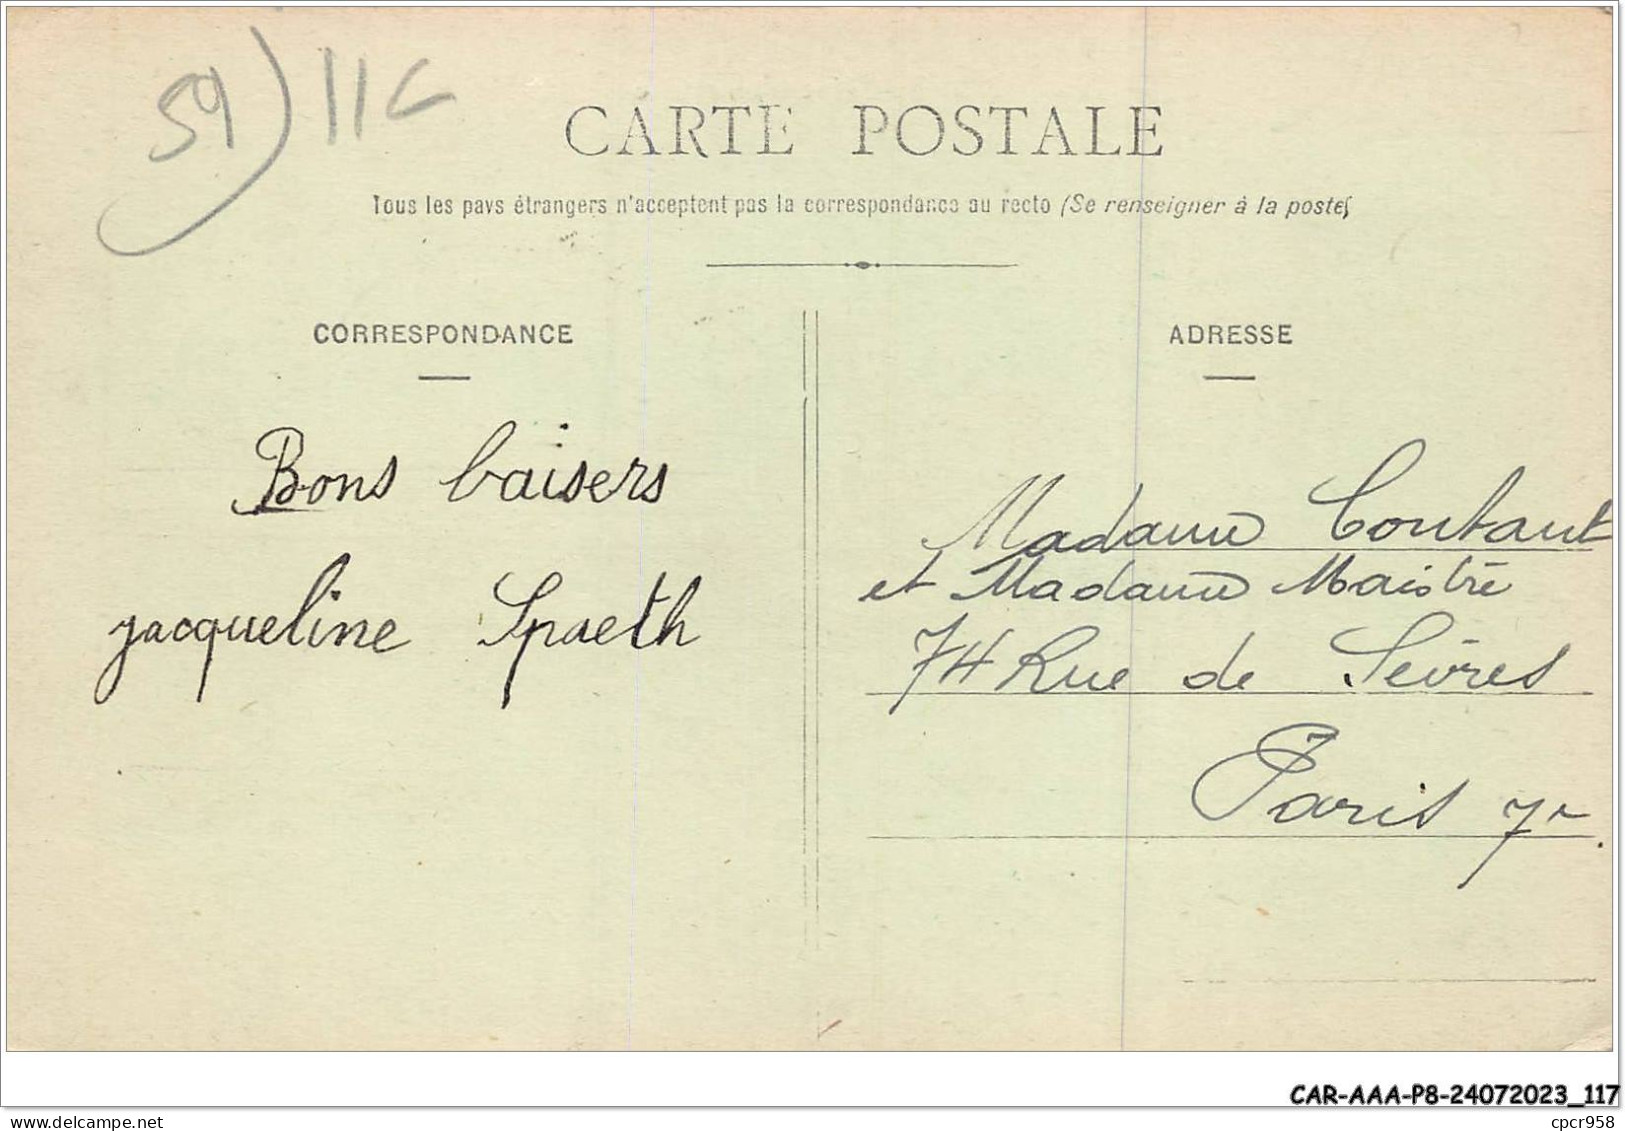 59) 11c
CARTE POSTALE
Tous les pays étrangers n'acceptent pas la correspondance au recto (Se renseigner à la poste)
CORRESPONDANCE
Bons baisers
jacqueline Spaeth
ADRESSE
Madame Coutant
et Madame Maistre
74 Rue de Sèvres
Paris 7e.
CAR-AAA-P8-24072023_117
delcampe.net
cpcr958